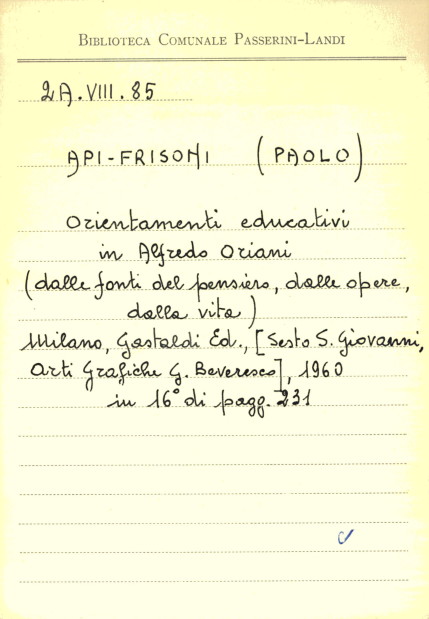 BIBLIOTECA COMUNALE PASSERINI-LANDI
2A.VIII.85
API-FRISONI (PAOLO)
Orientamenti educativi
in Alfredo Oriani
(dalle fonti del pensiero, dalle opere,
dalla vita)
Milano, Gastaldi Ed., [Sesto S. Giovanni,
Arti Grafiche G. Beveresco], 1960
in 16° di pagg. 231